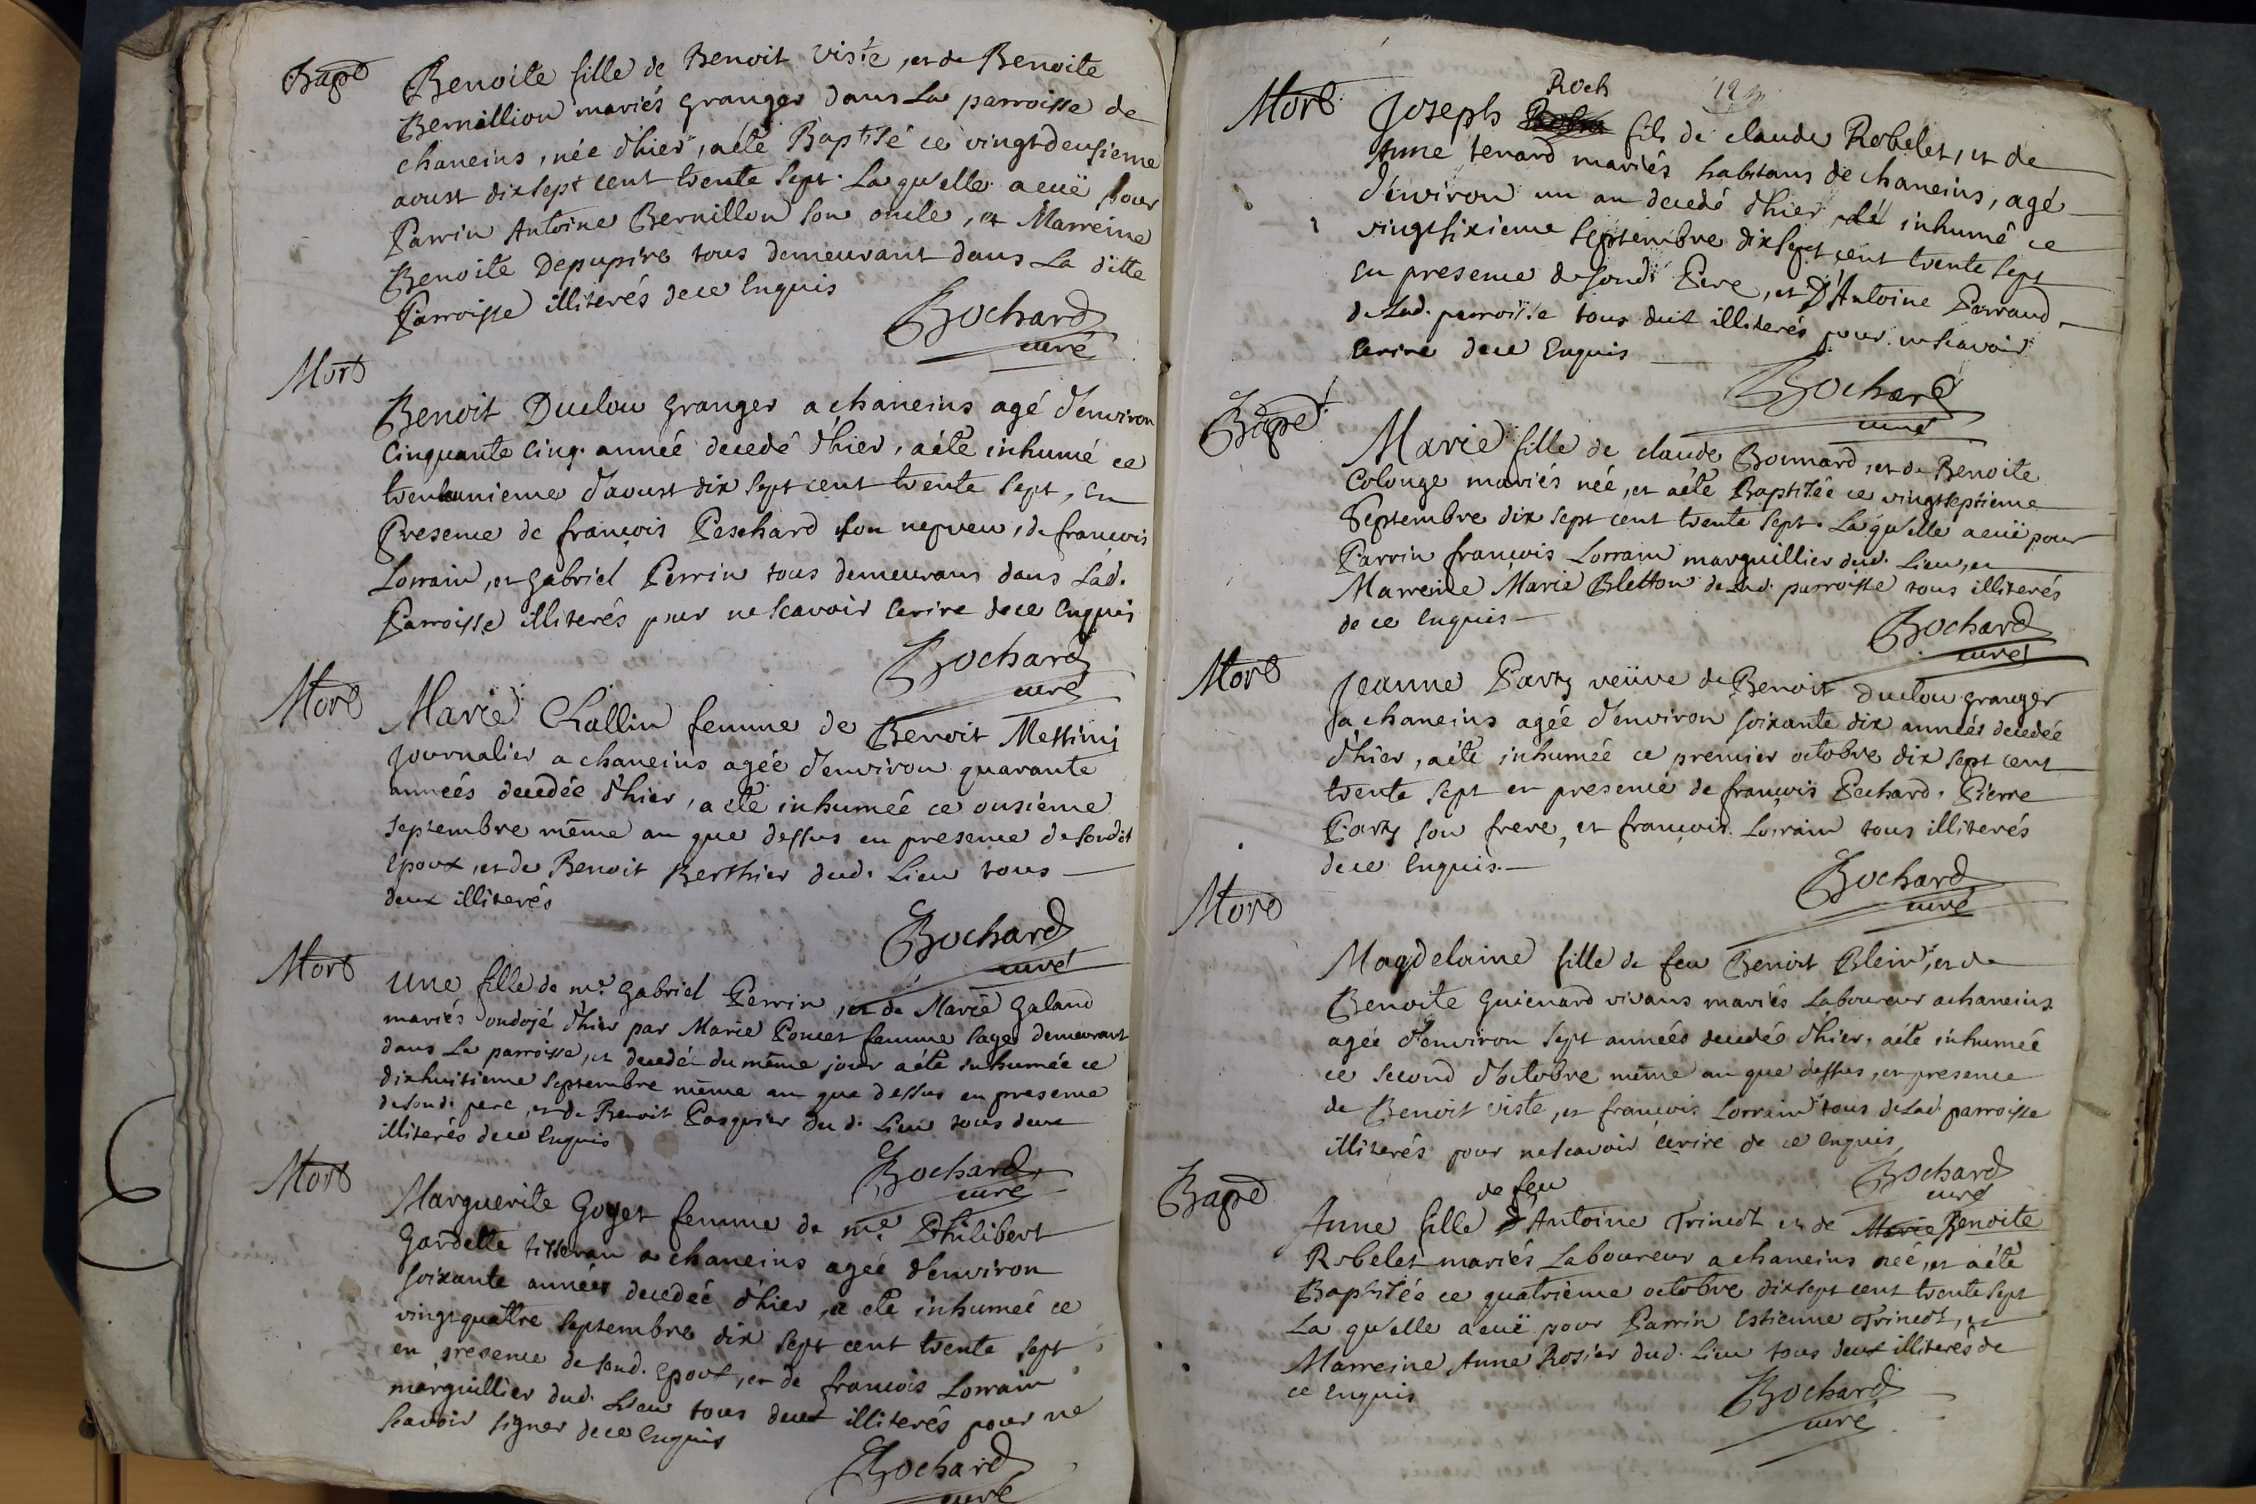 Bapt
Benoite fille de Benoit viste, et de Benoite
Bernillion mariés granger dans La parroisse de
chaneins, née d'hier, a été Baptisé ce vingtdeusieme
aoust dix sept cent trente sept. La qu'elle a euë pour
Parrin Antoine Bernillon son oncle, et Marreine
Benoite Depupire tous demeurant dans La ditte
Parroisse illiterés de ce Enquis
Bochard
curé
Mort
Benoit Duclou granger a chaneins agé d'environ
Cinquante Cinq. année decedé d'hier, a été inhumé ce
trentunieme d'aoust dix sept cent trente sept, en
Presence de françois Peschard son nepveu, de françois
Lorrain, et gabriel Perrin tous demeurans dans Lad.
Parroisse illiterés pour ne scavoir Ecrire de ce Enquis
Bochard
curé
Mort
Marie Challin femme de Benoit Messimi
Journalier a chaneins agée d'environ quarante
années decedée d'hier, a été inhumée ce onsieme
septembre même an que dessus en presence de sondit
Epoux, et de Benoit Berthier dud. Lieu tous
deux illiterés
Bochard
curé
Mort
une fille de me. gabriel Perrin, et de Marie galand
mariés ondojé d'hier par Marie Poncet femme sage demeurant
dans La parroisse, et decedée du même jour a été inhumée ce
dixhuitieme septembre même an que dessus en presence
de sond. pere, et de Benoit Pasquier du d. Lieu tous deux
illiterés de ce Enquis
Bochard
curé
Mort
Marguerite Goyet femme de me. Philibert
Gardette tisseran a chaneins agée d'environ
soixante années decedée d'hier, a été inhumée ce
vingtquatre septembre dix sept cent trente sept
en presence de sond. Epoux, et de françois Lorrain
marguillier dud. Lieu tous deux illiterés pour ne
scavoir signer de ce Enquis
Bochard
curé
Mort
Roch
Joseph fils de claude Robelet, et de
Anne tenard mariés habitans de chaneins, agé
d'environ un an decedé d'hier, a été inhumé ce
vingtsixieme septembre dix sept cent trente sept
En presence de sond. Pere, et D'Antoine Parraud
de Lad. parroisse tous deux illiterés pour ne scavoir
Ecrire de ce Enquis
Bochard
curé
Bapt
Marie fille de claude Bonnard, et de Benoite
Colonge mariés née, et a été Baptisée ce vingtseptieme
Septembre dix sept cent trente sept. La qu'elle a euë pour
Parrin françois Lorrain marguillier dud. Lieu, et
Marreine Marie Bletton de Lad. parroisse tous illiterés
de ce Enquis
Bochard
curé
Mort
Jeanne Party veüve de Benoit Duclou granger
a chaneins agée d'environ soixante dix années decedée
d'hier, a été inhumée ce premier octobre dix sept cent
trente sept en presence de françois Pechard. Pierre
Party son frere, et françois Lorrain tous illiterés
de ce Enquis.
Bochard
curé
Mort
Magdelaine fille de feu Benoit Blein, et de
Benoite Guienard vivans mariés Laboureur a chaneins
agée d'environ sept années decedée d'hier, a été inhumée
ce second d'octobre même an que dessus, en presence
de Benoit viste, et françois Lorrain tous de Lad. parroisse
illiterés pour ne scavoir Ecrire de ce Enquis
Bochard
curé
Bapt
de feu
Anne fille d'Antoine Trinedt et de Marie Benoite
Robelet mariés Laboureur a chaneins née, et a été
Baptisée ce quatrieme octobre dix sept cent trente sept
La qu'elle a euë pour Parrin Estienne Trinedt, et
Marreine Anne Rosier dud. Lieu tous deux illiterés de
ce Enquis
Bochard
curé